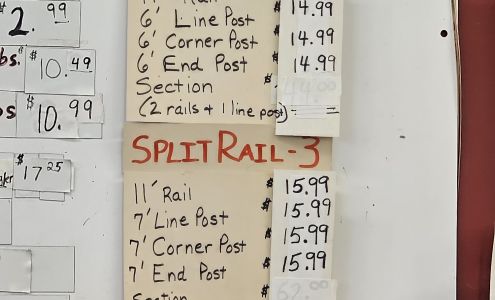 2.99
bs. $10.49
s $10.99
$17.25
11' Rail $14.99
6' Line Post $14.99
6' Corner Post $14.99
6' End Post
Section $44.00
(2 rails + 1 line post)
SPLIT RAIL-3
11' Rail $15.99
7' Line Post $15.99
7' Corner Post $15.99
7' End Post $15.99
Section 52.00